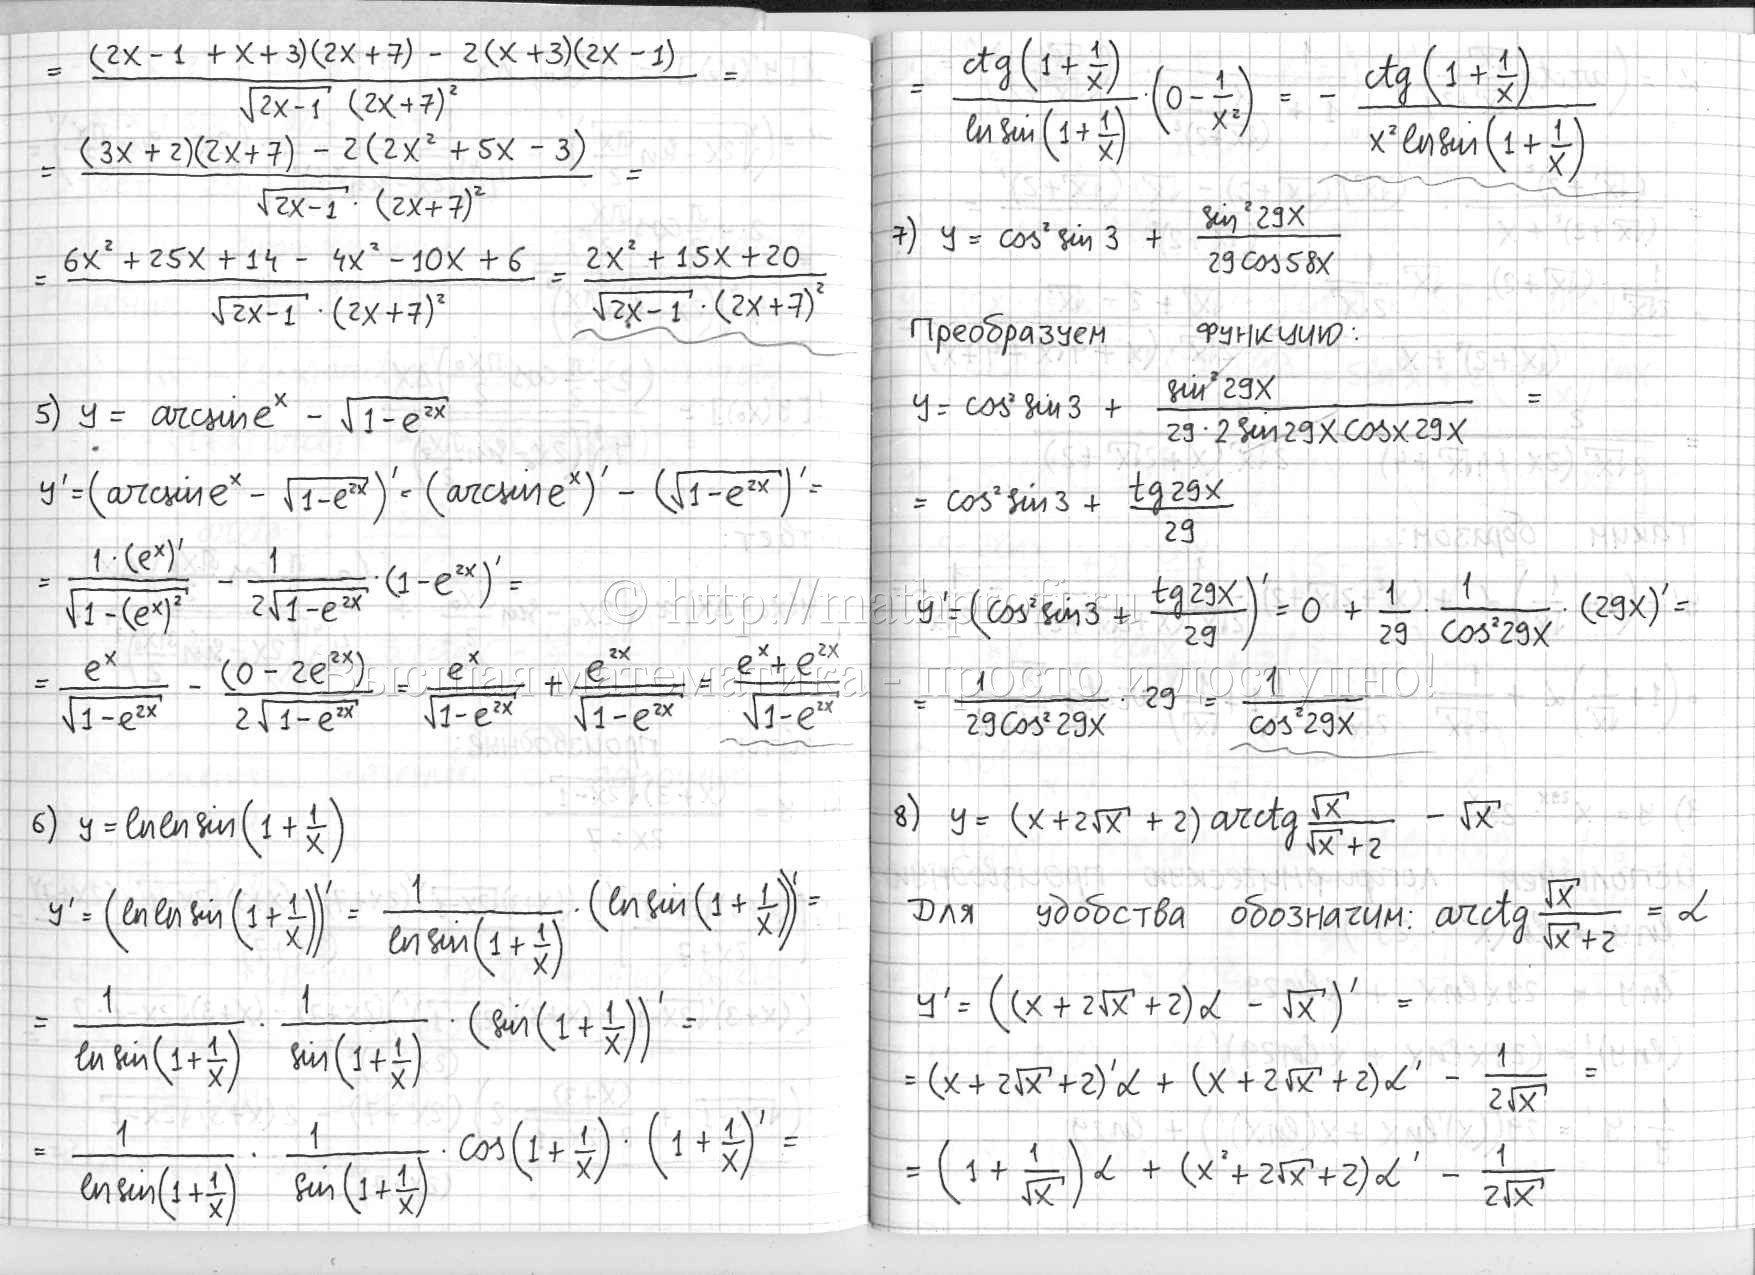 = ((2x-1 + x+3)(2x+7) - 2(x+3)(2x-1))/(√(2x-1) (2x+7)²) =
= ((3x+2)(2x+7) - 2(2x²+5x-3))/(√(2x-1) · (2x+7)²) =
= (6x²+25x+14 - 4x²-10x+6)/(√(2x-1) · (2x+7)²) = (2x²+15x+20)/(√(2x-1) · (2x+7)²)
5) y = arcsin eˣ - √(1-e²ˣ)
y' = (arcsin eˣ - √(1-e²ˣ))' = (arcsin eˣ)' - (√(1-e²ˣ))' =
= (1·(eˣ)')/√(1-(eˣ)²) - 1/(2√(1-e²ˣ)) · (1-e²ˣ)' =
= eˣ/√(1-e²ˣ) - (0-2e²ˣ)/(2√(1-e²ˣ)) = eˣ/√(1-e²ˣ) + e²ˣ/√(1-e²ˣ) = (eˣ+e²ˣ)/√(1-e²ˣ)
6) y = ln ln sin(1+1/x)
y' = (ln ln sin(1+1/x))' = 1/(ln sin(1+1/x)) · (ln sin(1+1/x))' =
= 1/(ln sin(1+1/x)) · 1/(sin(1+1/x)) · (sin(1+1/x))' =
= 1/(ln sin(1+1/x)) · 1/(sin(1+1/x)) · cos(1+1/x) · (1+1/x)' =
= ctg(1+1/x)/(ln sin(1+1/x)) · (0-1/x²) = - ctg(1+1/x)/(x² ln sin(1+1/x))
7) y = cos² sin 3 + sin²29x/(29 cos 58x)
Преобразуем функцию:
y = cos² sin 3 + sin²29x/(29·2 sin 29x cosx 29x) =
= cos² sin 3 + tg 29x/29
y' = (cos² sin 3 + tg 29x/29)' = 0 + 1/29 · 1/cos²29x · (29x)' =
= 1/(29 cos²29x) · 29 = 1/cos²29x
8) y = (x+2√x+2) arctg √x/(√x+2) - √x
Для удобства обозначим: arctg √x/(√x+2) = α
y' = ((x+2√x+2)α - √x)' =
= (x+2√x+2)'α + (x+2√x+2)α' - 1/(2√x) =
= (1+1/√x)α + (x²+2√x+2)α' - 1/(2√x)
© http://mathprofi.ru
Высшая математика - просто и доступно!